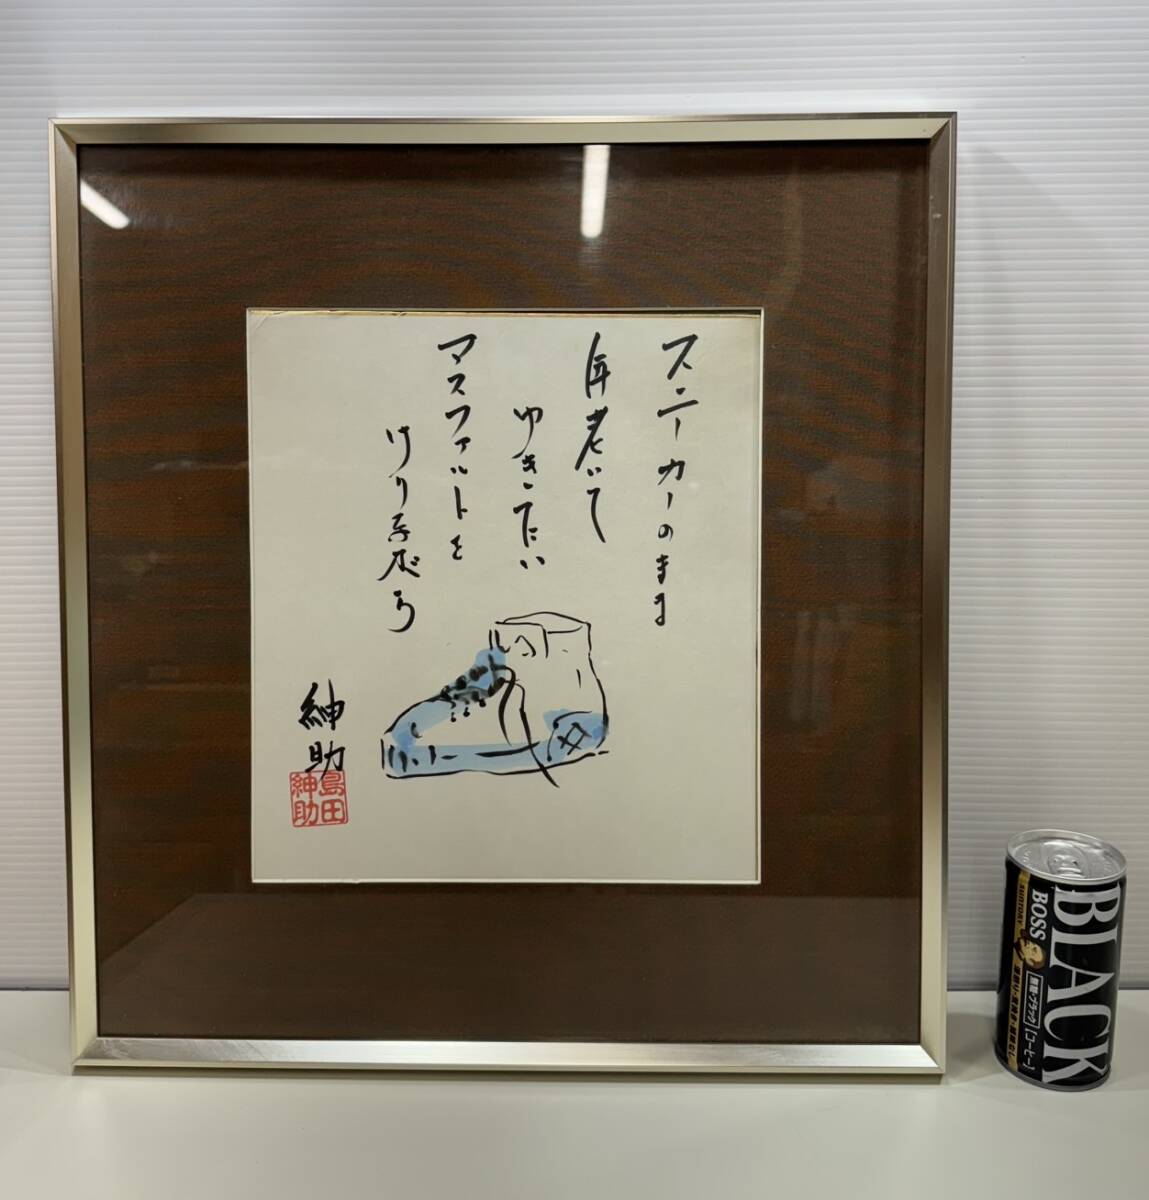 スニーカーのまま
年老いて
ゆきたい
マスファルトを
けり
紳助
島田
紳助
BLACK
BOSS
SUNTORY
無糖・ブラック
[コーヒー]